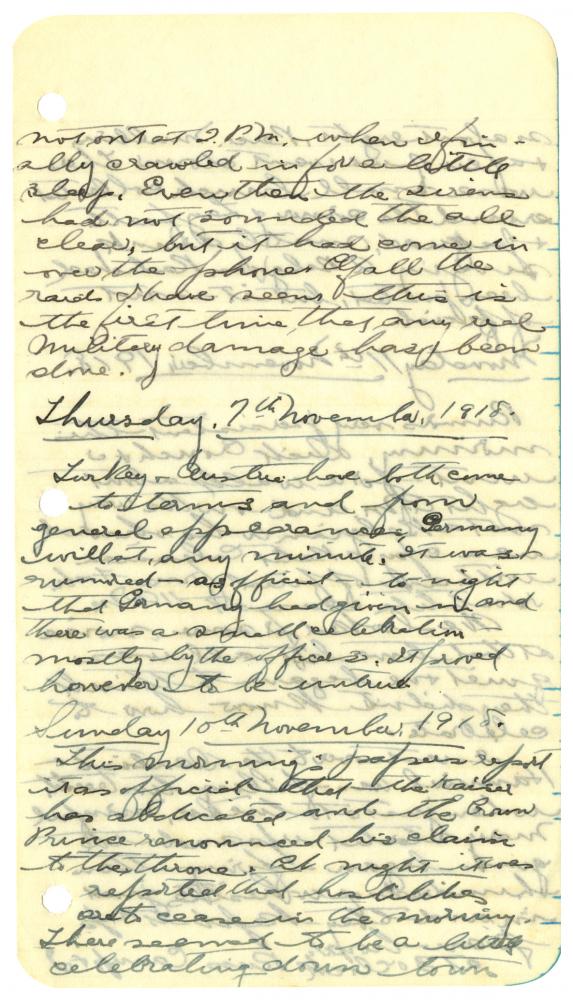 not out at 2. P.M. when I fin-
ally crawled in for a little
sleep. Even then the sirens
had not sounded the all
clear, but it had come in
over the phone. Of all the
raids I have seen this is
the first time that any real
Military damage has been
done.
Thursday, 7th November, 1918.
Turkey & Austria have both come
to terms and from
general appearances, Germany
will at any minute. It was
rumored - as official - to night
that Germany had given in and
there was a small celebration
mostly by the officers. It proved
however to be untrue.
Sunday 10th November, 1918.
This morning's papers report
it as official that the Kaiser
has abdicated and the Crown
Prince renounced his claim
to the throne. At night it was
reported that hostilities
are to cease in the morning.
There seemed to be a little
celebrating down town